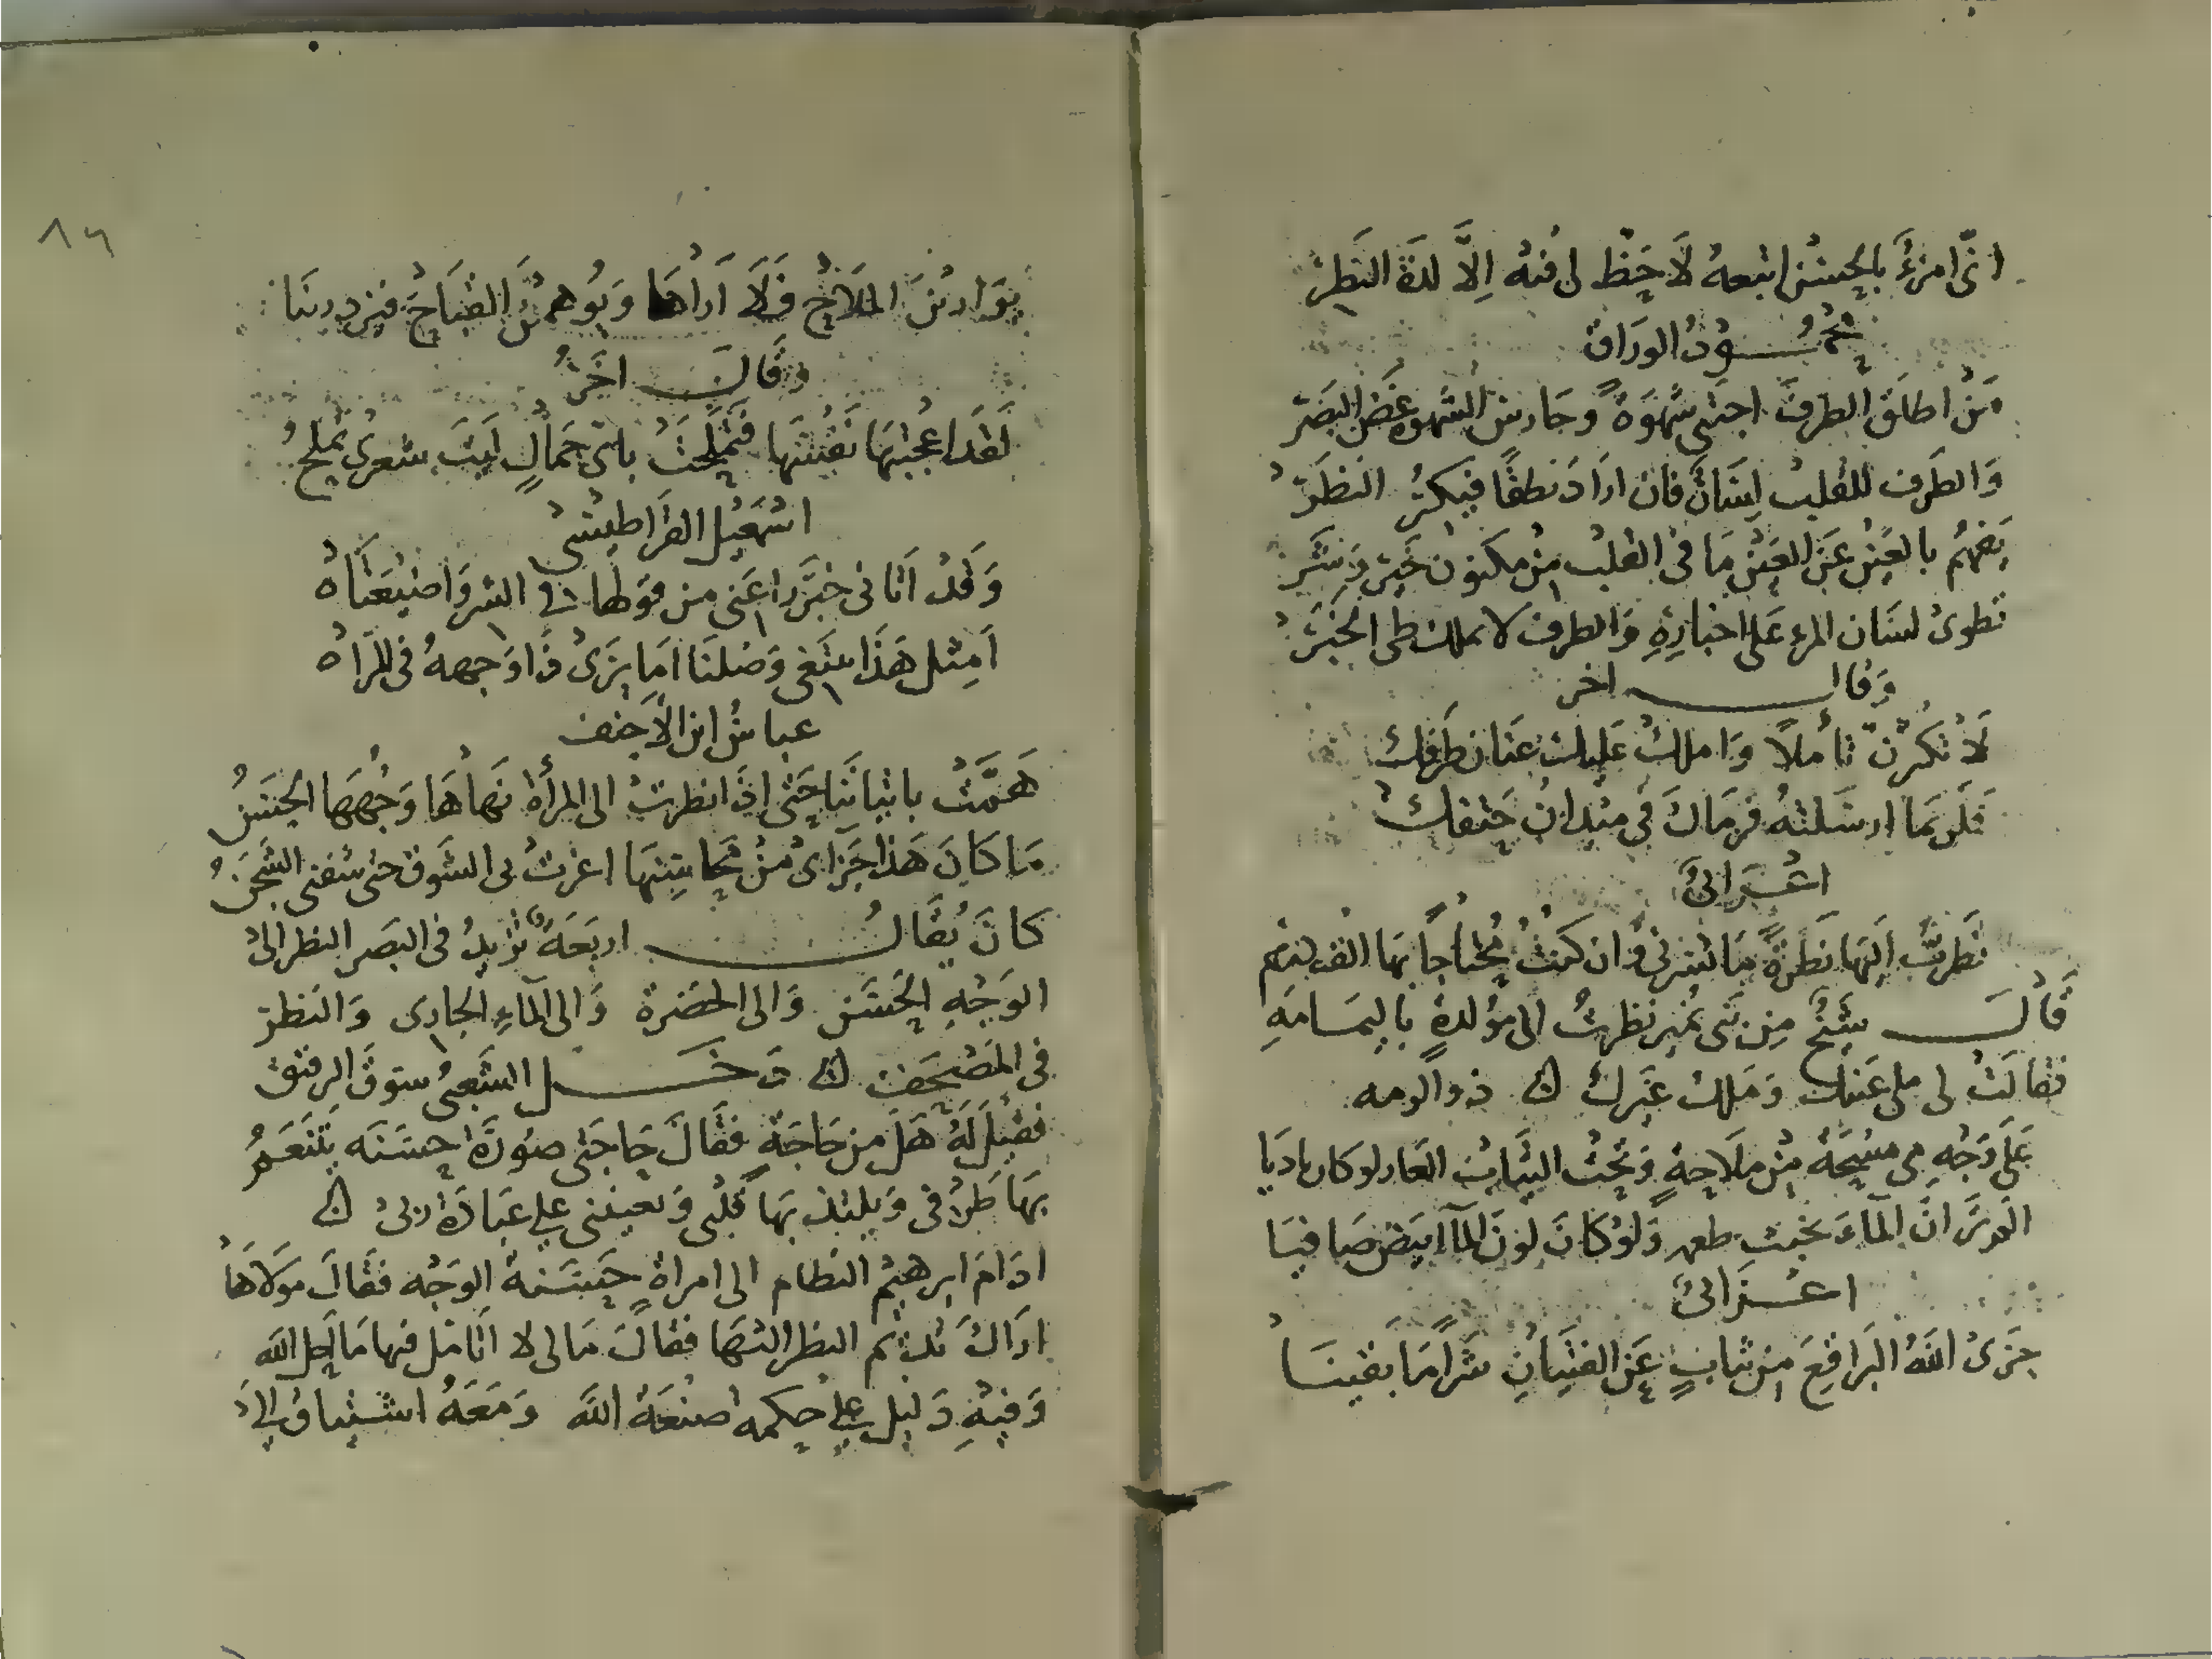 انى امرؤ بالحسن اتبعه لا حظ لى فيه الا لذة النظر
محمود الوراق
من اطلق الطرف اجتنى شهوة وحارس الشهوة غض البصر
والطرف للقلب لسان فان اراد نطقا فيكر النظر
يفهم بالعين عن العين ما فى القلب من مكنون خير وشر
تطوى لسان المرء على اخباره والطرف لا يملك طى الخبر
وقال اخر
لا تكثرن تأملا واملك عليك عنان طرفك
فلربما ارسلته فرماك فى ميدان حتفك
اعرابى
نظرت اليها نظرة ما تسرنى وان كنت محتاجا بها الف درهم
قال شيخ من بنى نمير نظرت الى مولدة باليمامه
فقالت لى ملى عينك وملك غيرك ذو الرمه
على وجه مى مسحة من ملاحة وتحت الثياب العار لو كان باديا
الم تر ان الماء يخبث طعمه ولو كان لون الماء ابيض صافيا
اعرابى
جزى الله البراقع من ثياب عن الفتيان شرا ما بقينا
٨٦
يوارين الملاح فلا اراها ويوهمن القباح فيزدرينا
وقال اخر
لقد اعجبتها نفسها فتملحت باى جمال ليت شعرى تملح
اسمعيل القراطيسى
وقد اتانى خبر راعنى من قولها فى السر واضيعتاه
امثل هذا يبتغى وصلنا اما يرى ذا وجهه فى المراه
عباس ابن الاحنف
همت باتياننا حتى اذا نظرت الى المرأة نهاها وجهها الحسن
ما كان هذا جزاى من محاسنها اغرت بى الشوق حتى شفنى الشجن
كان يقال اربعة تزيد فى البصر النظر الى
الوجه الحسن والى الخضرة والى الماء الجارى والنظر
فى المصحف دخل الشعبى سوق الرقيق
فقيل له هل من حاجة فقال حاجتى صورة حسنه يتنعم
بها طرفى ويلتذ بها قلبى وتعيننى على عبادة ربى
ادام ابرهيم النظام الى امراة حسنة الوجه فقال مولاها
اراك تديم النظر اليها فقال مالى لا اتامل فيها ما احل الله
وفيه دليل على حكمة صنعة الله ومعه اشتياق الى